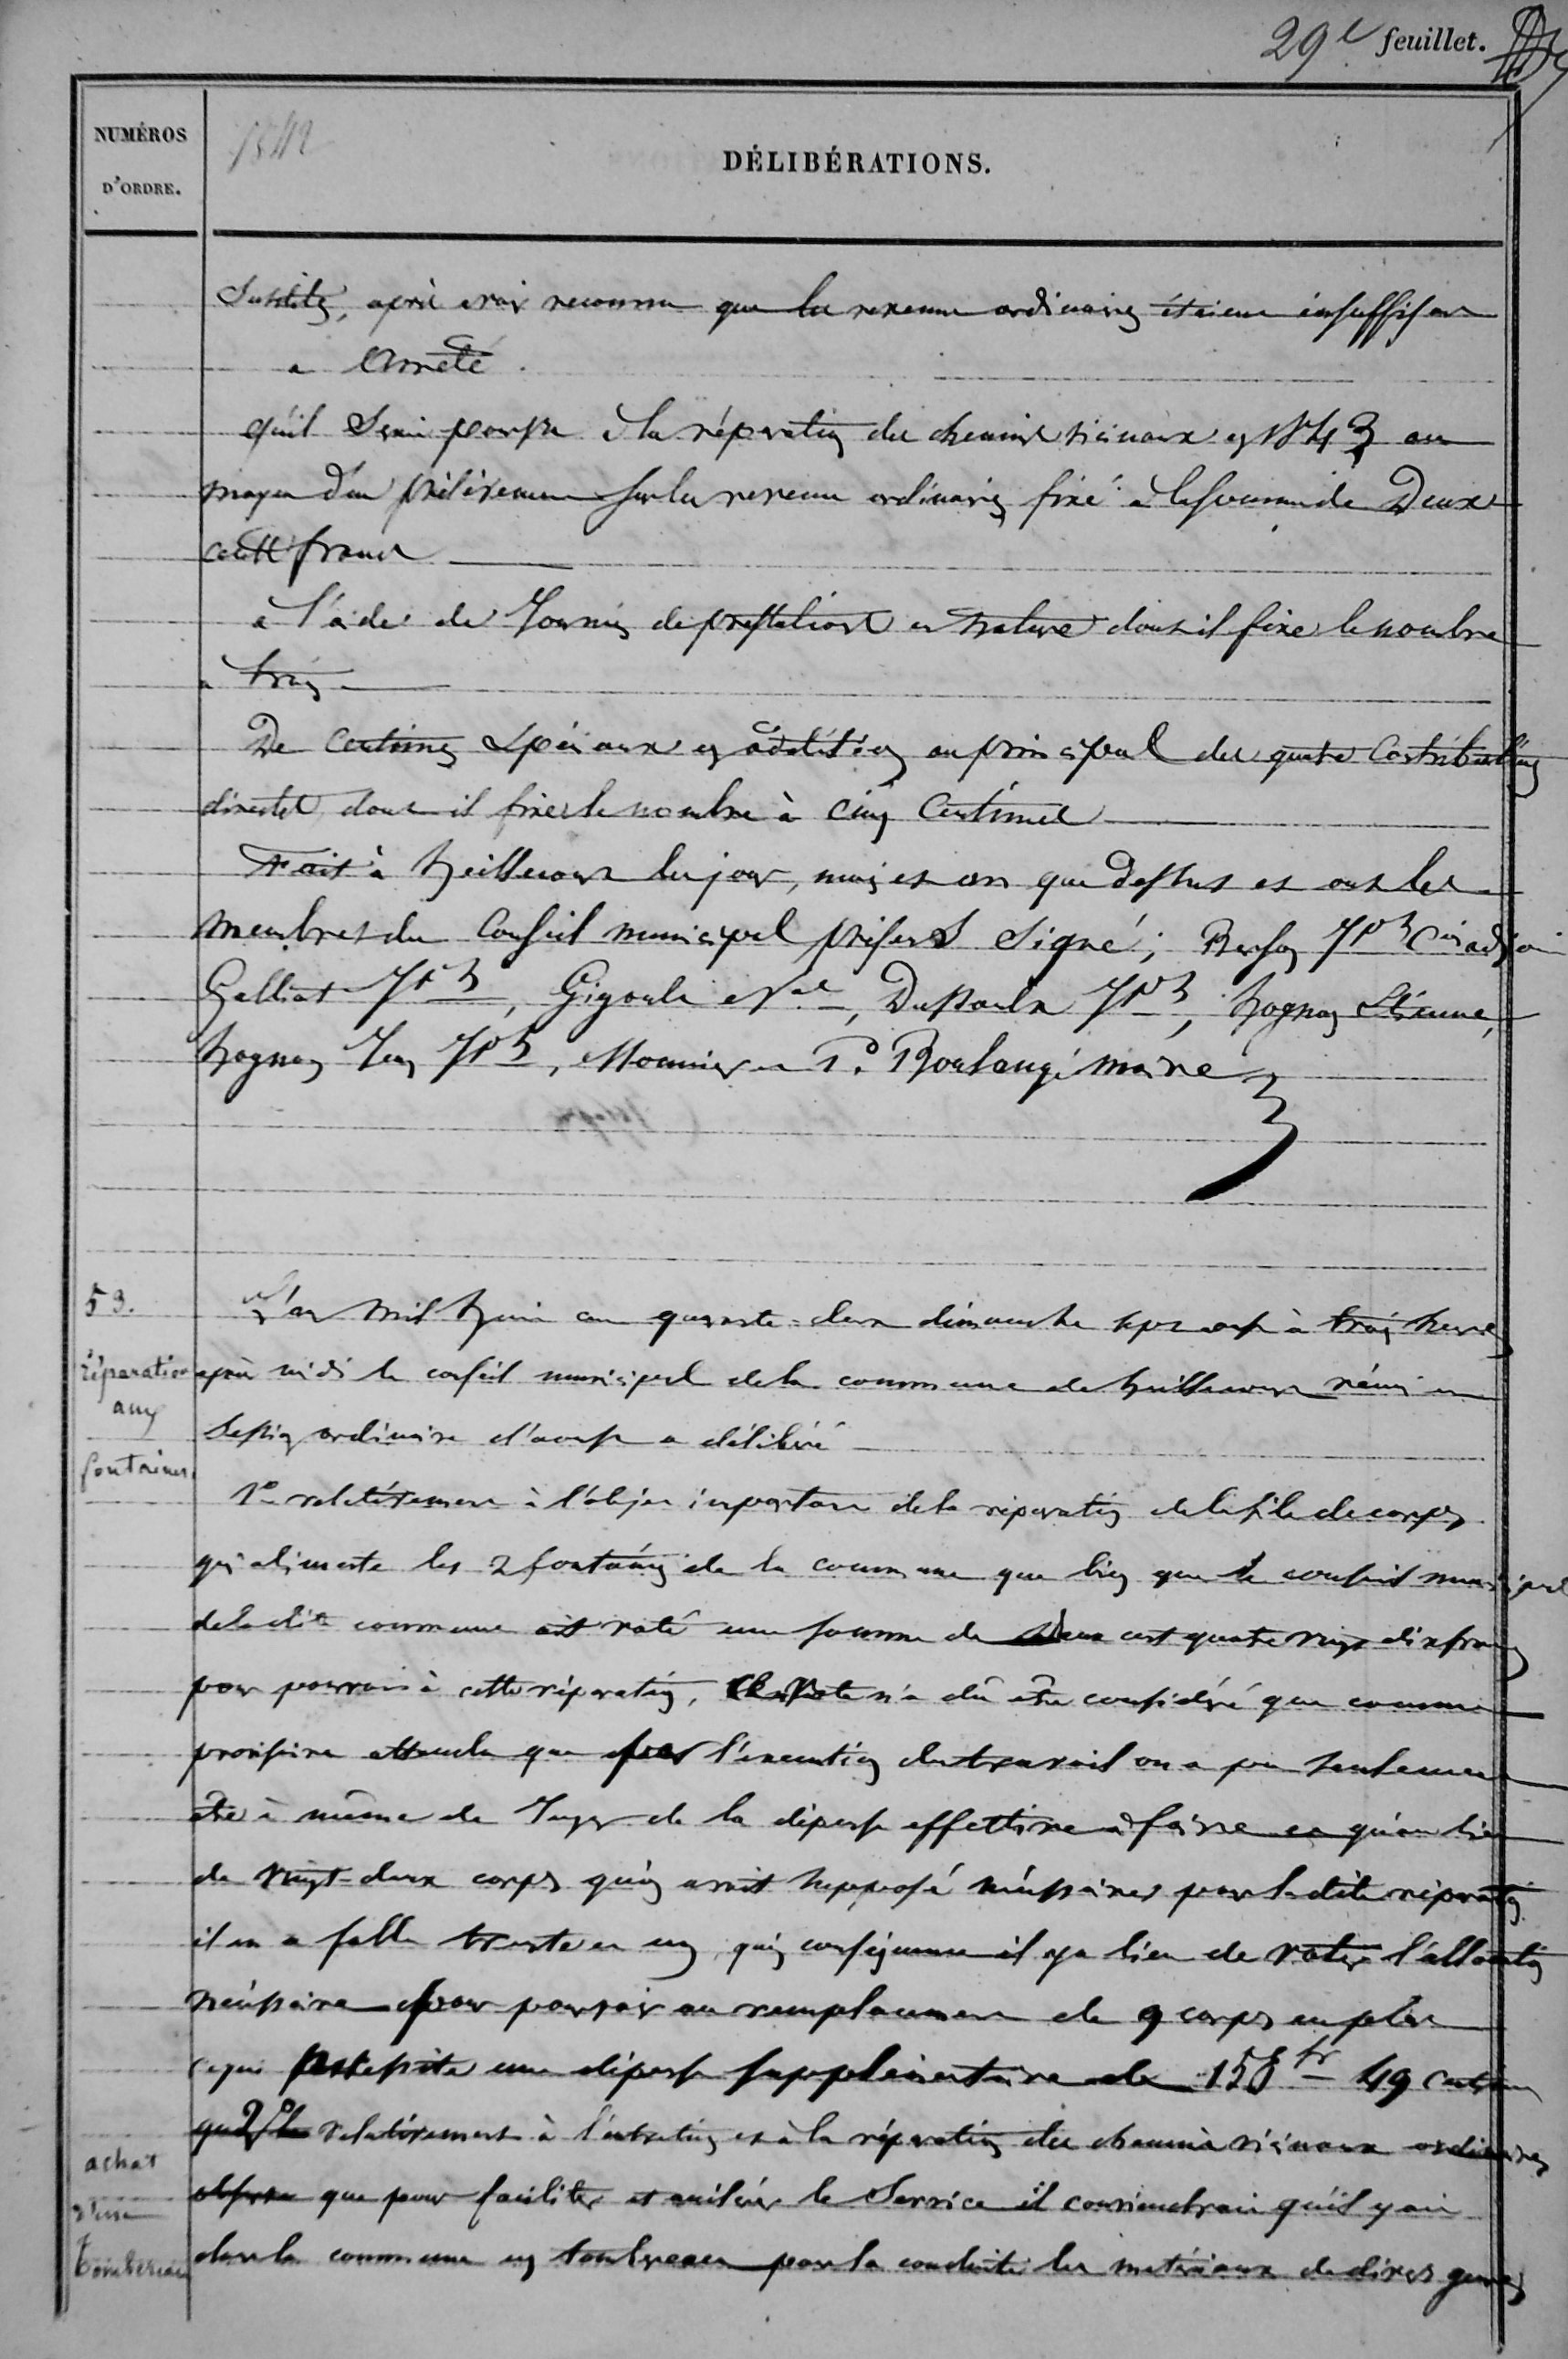 29e feuillet.
NUMÉROS
D'ORDRE.
1842
DÉLIBÉRATIONS.
Susdites, après avoir reconnu que les revenus ordinaires étaient insuffisans
a Arrêté.
qu'il serai pourvu à la réparation des chemins vicinaux en 1843 au
moyen d'un prélèvement sur les revenus ordinaires fixé à la somme de Deux
cents francs
à l'aide de Journées de prestations en nature dont il fixe le nombre
à trois
De Centimes spéciaux en addition au principal des quatre Contributions
directes dont il fixe le nombre à cinq Centimes
Fait à heillecourt les jour, mois et an que dessus et ont les
membres du Conseil municipal présens Signé; Jph adjoin
Galliot Jph, Gigoule, Jph, hognon Etienne,
hognon Jean Jph, Mounier et P. Boulangé maire
53.
réparation
aux
fontaines
L'an mil huit cent quarante-deux dimanche sept aout à trois heures
après midi le conseil municipal de la commune de heillecourt réuni en
session ordinaire d'aout a délibéré
1o relativement à l'objet important de la réparation de la file de corps
qui alimente les 2 fontaines de la commune que bien que le conseil municipal
de la dite commune ait voté une somme de Deux cent quatre vingt dix francs
pour pourvoir à cette réparation, n'a dû être considéré que comme
provisoire attendu que par l'exécution du travail on a pu seulement
être à même de Juger de la dépense effective à faire et qu'au lieu
de vingt-deux corps qu'on avait supposé nécessaires pour la dite réparation
il en a fallu trente et un, qu'en conséquence il y a lieu de voter l'allocation
nécessaire pour pourvoir au remplacement de 9 corps en plus
ce qui nécessite une dépense supplémentaire de 158 fr 49 Centimes
achat
d'un
tombereau
que 2o relativement à l'entretien et à la réparation des chemins vicinaux ordinaires
observe que pour faciliter et améliorer le Service il conviendrait qu'il y ait
dans la commune un tombereau pour la conduite des matériaux de divers genres